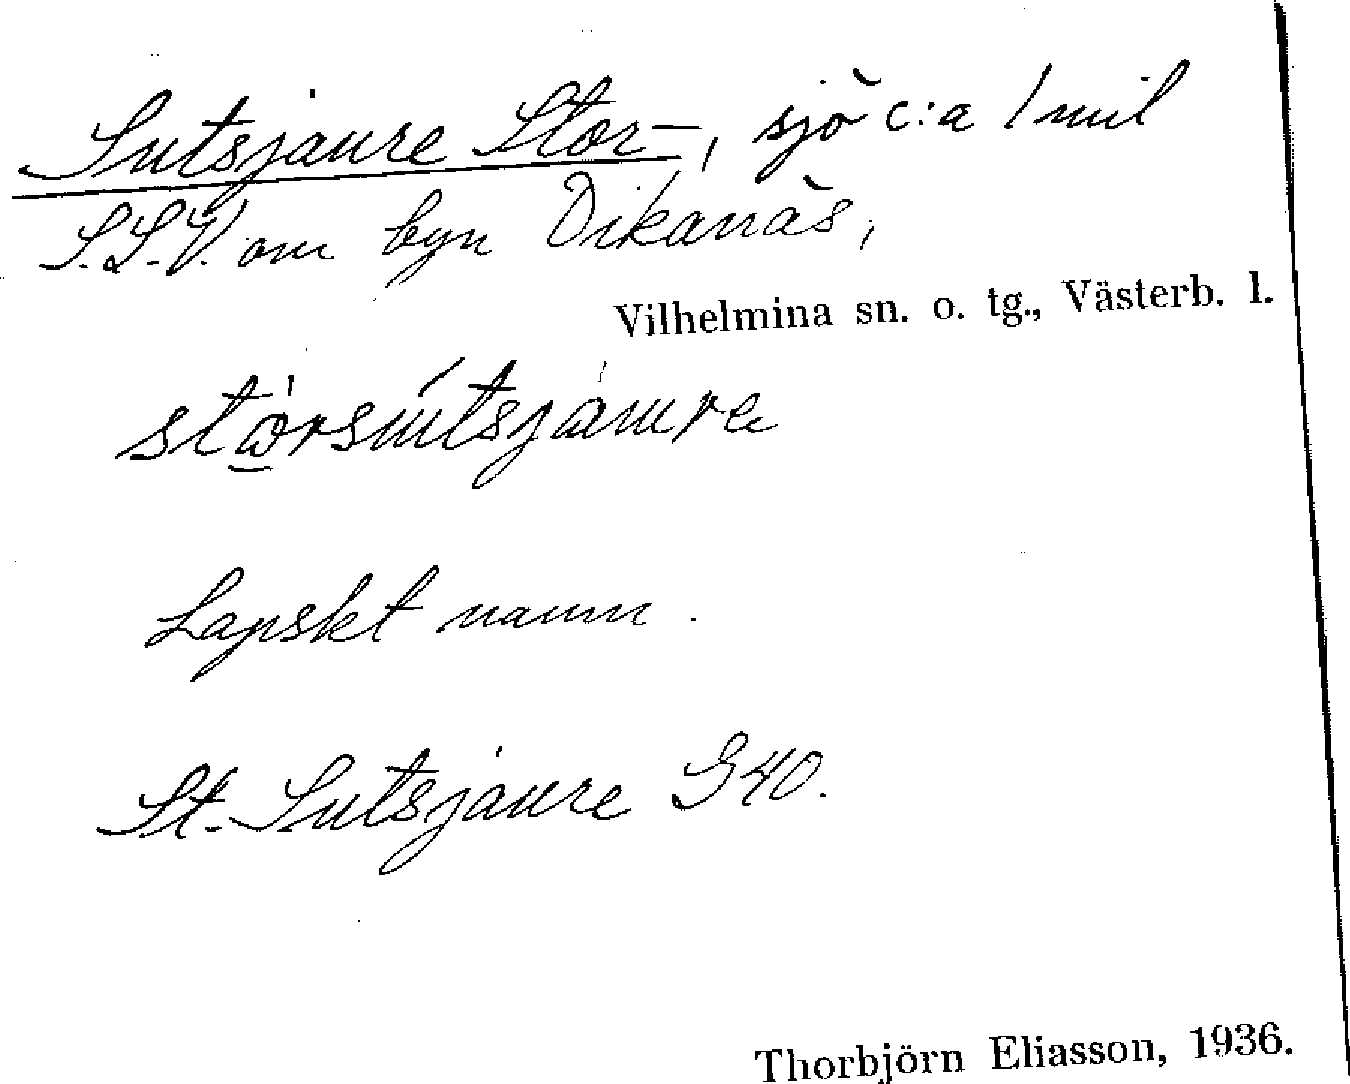 Sutsjaure Stor-, sjö c:a 1 mil
S.S.V. om byn Dikanäs,
Vilhelmina sn. o. tg., Västerb. l.
Lapskt namn.
St. Sutsjaure G40.
Thorbjörn Eliasson, 1936.